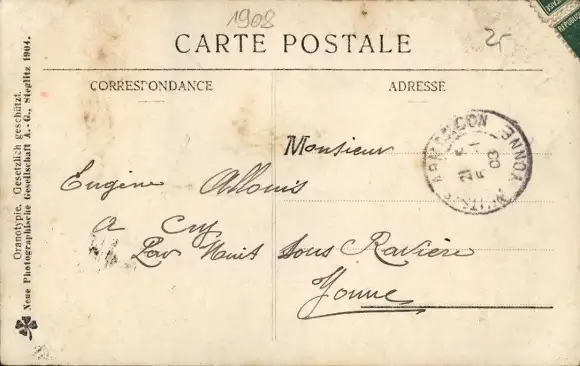 1908
25
CARTE POSTALE
CORRESPONDANCE
ADRESSE
Monsieur
Eugène Allouis
A Cry
Par Nuit Sous Ravière
Yonne
YONNE
Oranotypie. Gesetzlich geschützt.
Neue Photographische Gesellschaft A.-G., Steglitz 1904.